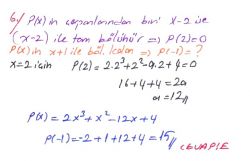 6) P(x) in çarpanlarından biri x-2 ise
(x-2) ile tam bölünür ⇒ P(2)=0
P(x) in x+1 ile böl. kalan ⇒ P(-1)=?
x=2 için P(2)=2.2³+2²-a.2+4=0
16+4+4=2a
a=12//
P(x)=2x³+x²-12x+4
P(-1)=-2+1+12+4=15//
CEVAP E